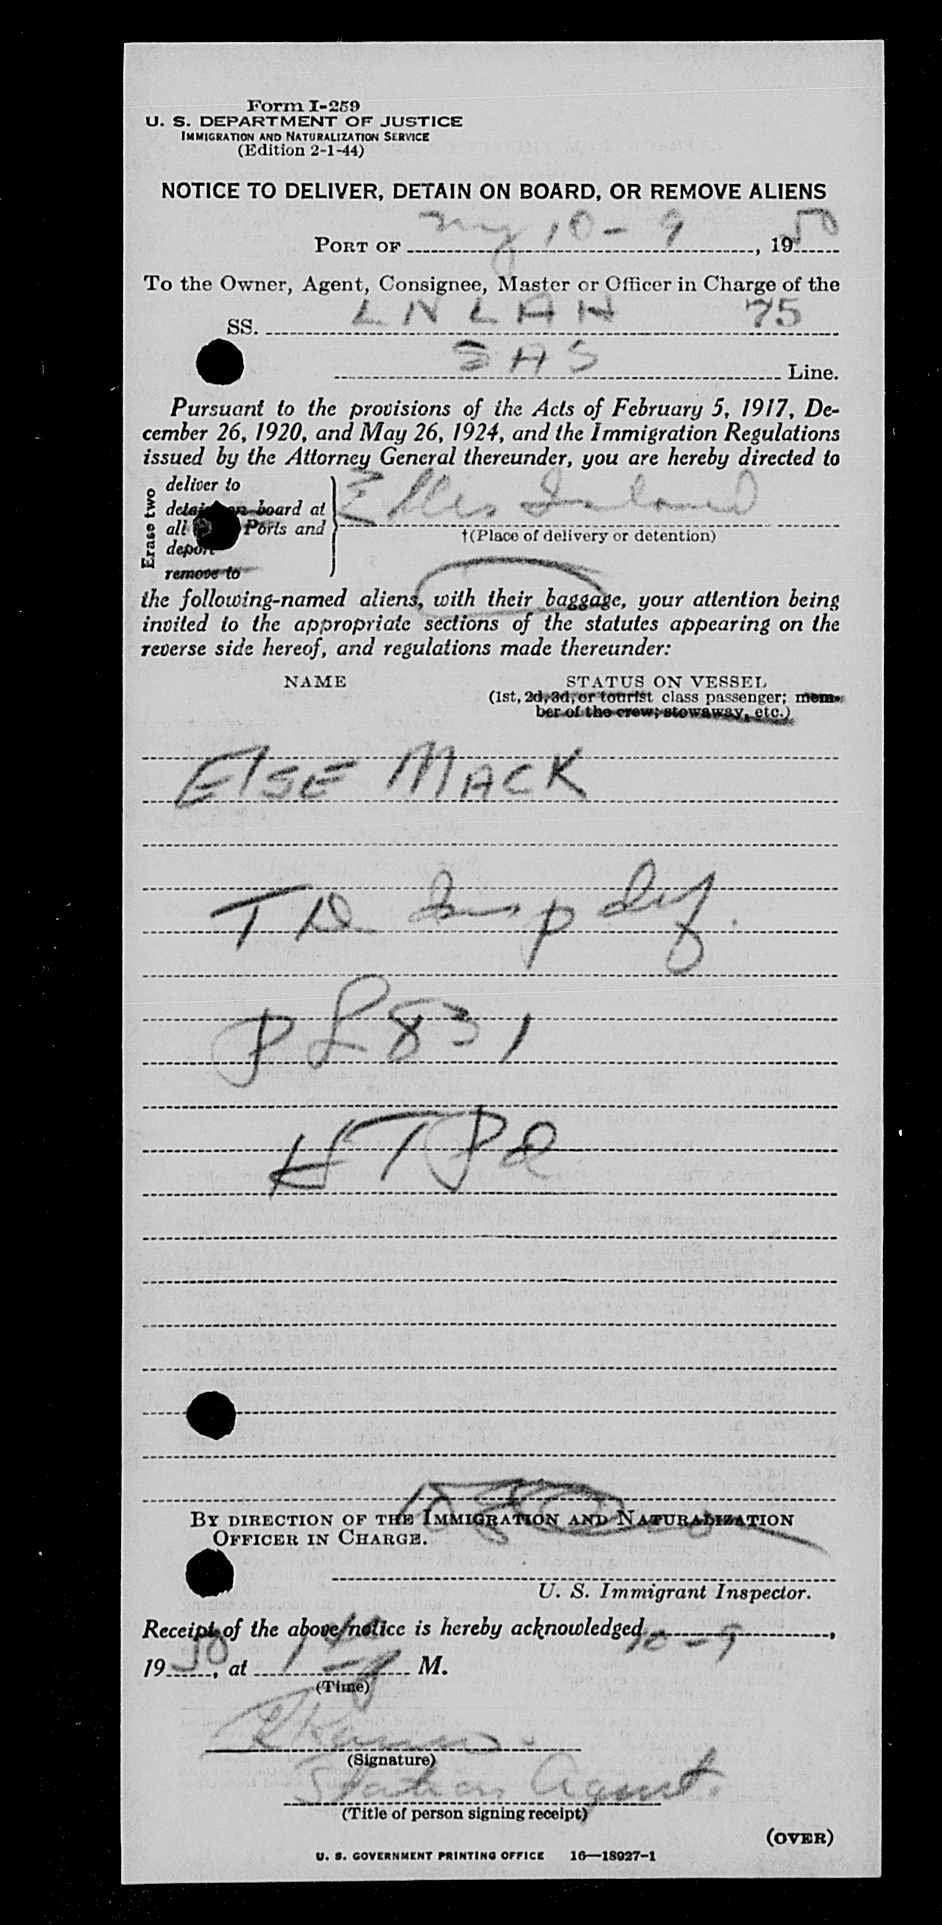 Form I-259
U. S. DEPARTMENT OF JUSTICE
IMMIGRATION AND NATURALIZATION SERVICE
(Edition 2-1-44)
NOTICE TO DELIVER, DETAIN ON BOARD, OR REMOVE ALIENS
PORT OF NY 10-9, 1950
To the Owner, Agent, Consignee, Master or Officer in Charge of the
SS. LN LAH 75
SAS Line.
Pursuant to the provisions of the Acts of February 5, 1917, De-
cember 26, 1920, and May 26, 1924, and the Immigration Regulations
issued by the Attorney General thereunder, you are hereby directed to
Erase two
deliver to
detain on board at
all Ports and
deport
remove to
Ellis Island
†(Place of delivery or detention)
the following-named aliens, with their baggage, your attention being
invited to the appropriate sections of the statutes appearing on the
reverse side hereof, and regulations made thereunder:
NAME STATUS ON VESSEL
(1st, 2d, 3d, or tourist class passenger; mem-
ber of the crew; stowaway, etc.)
ELSE MACK
TD Insp
PL 831
BY DIRECTION OF THE IMMIGRATION AND NATURALIZATION
OFFICER IN CHARGE.
U. S. Immigrant Inspector.
Receipt of the above notice is hereby acknowledged 10-9,
1950, at M.
(Time)
(Signature)
Station Agent.
(Title of person signing receipt)
(OVER)
U. S. GOVERNMENT PRINTING OFFICE 16—18927-1